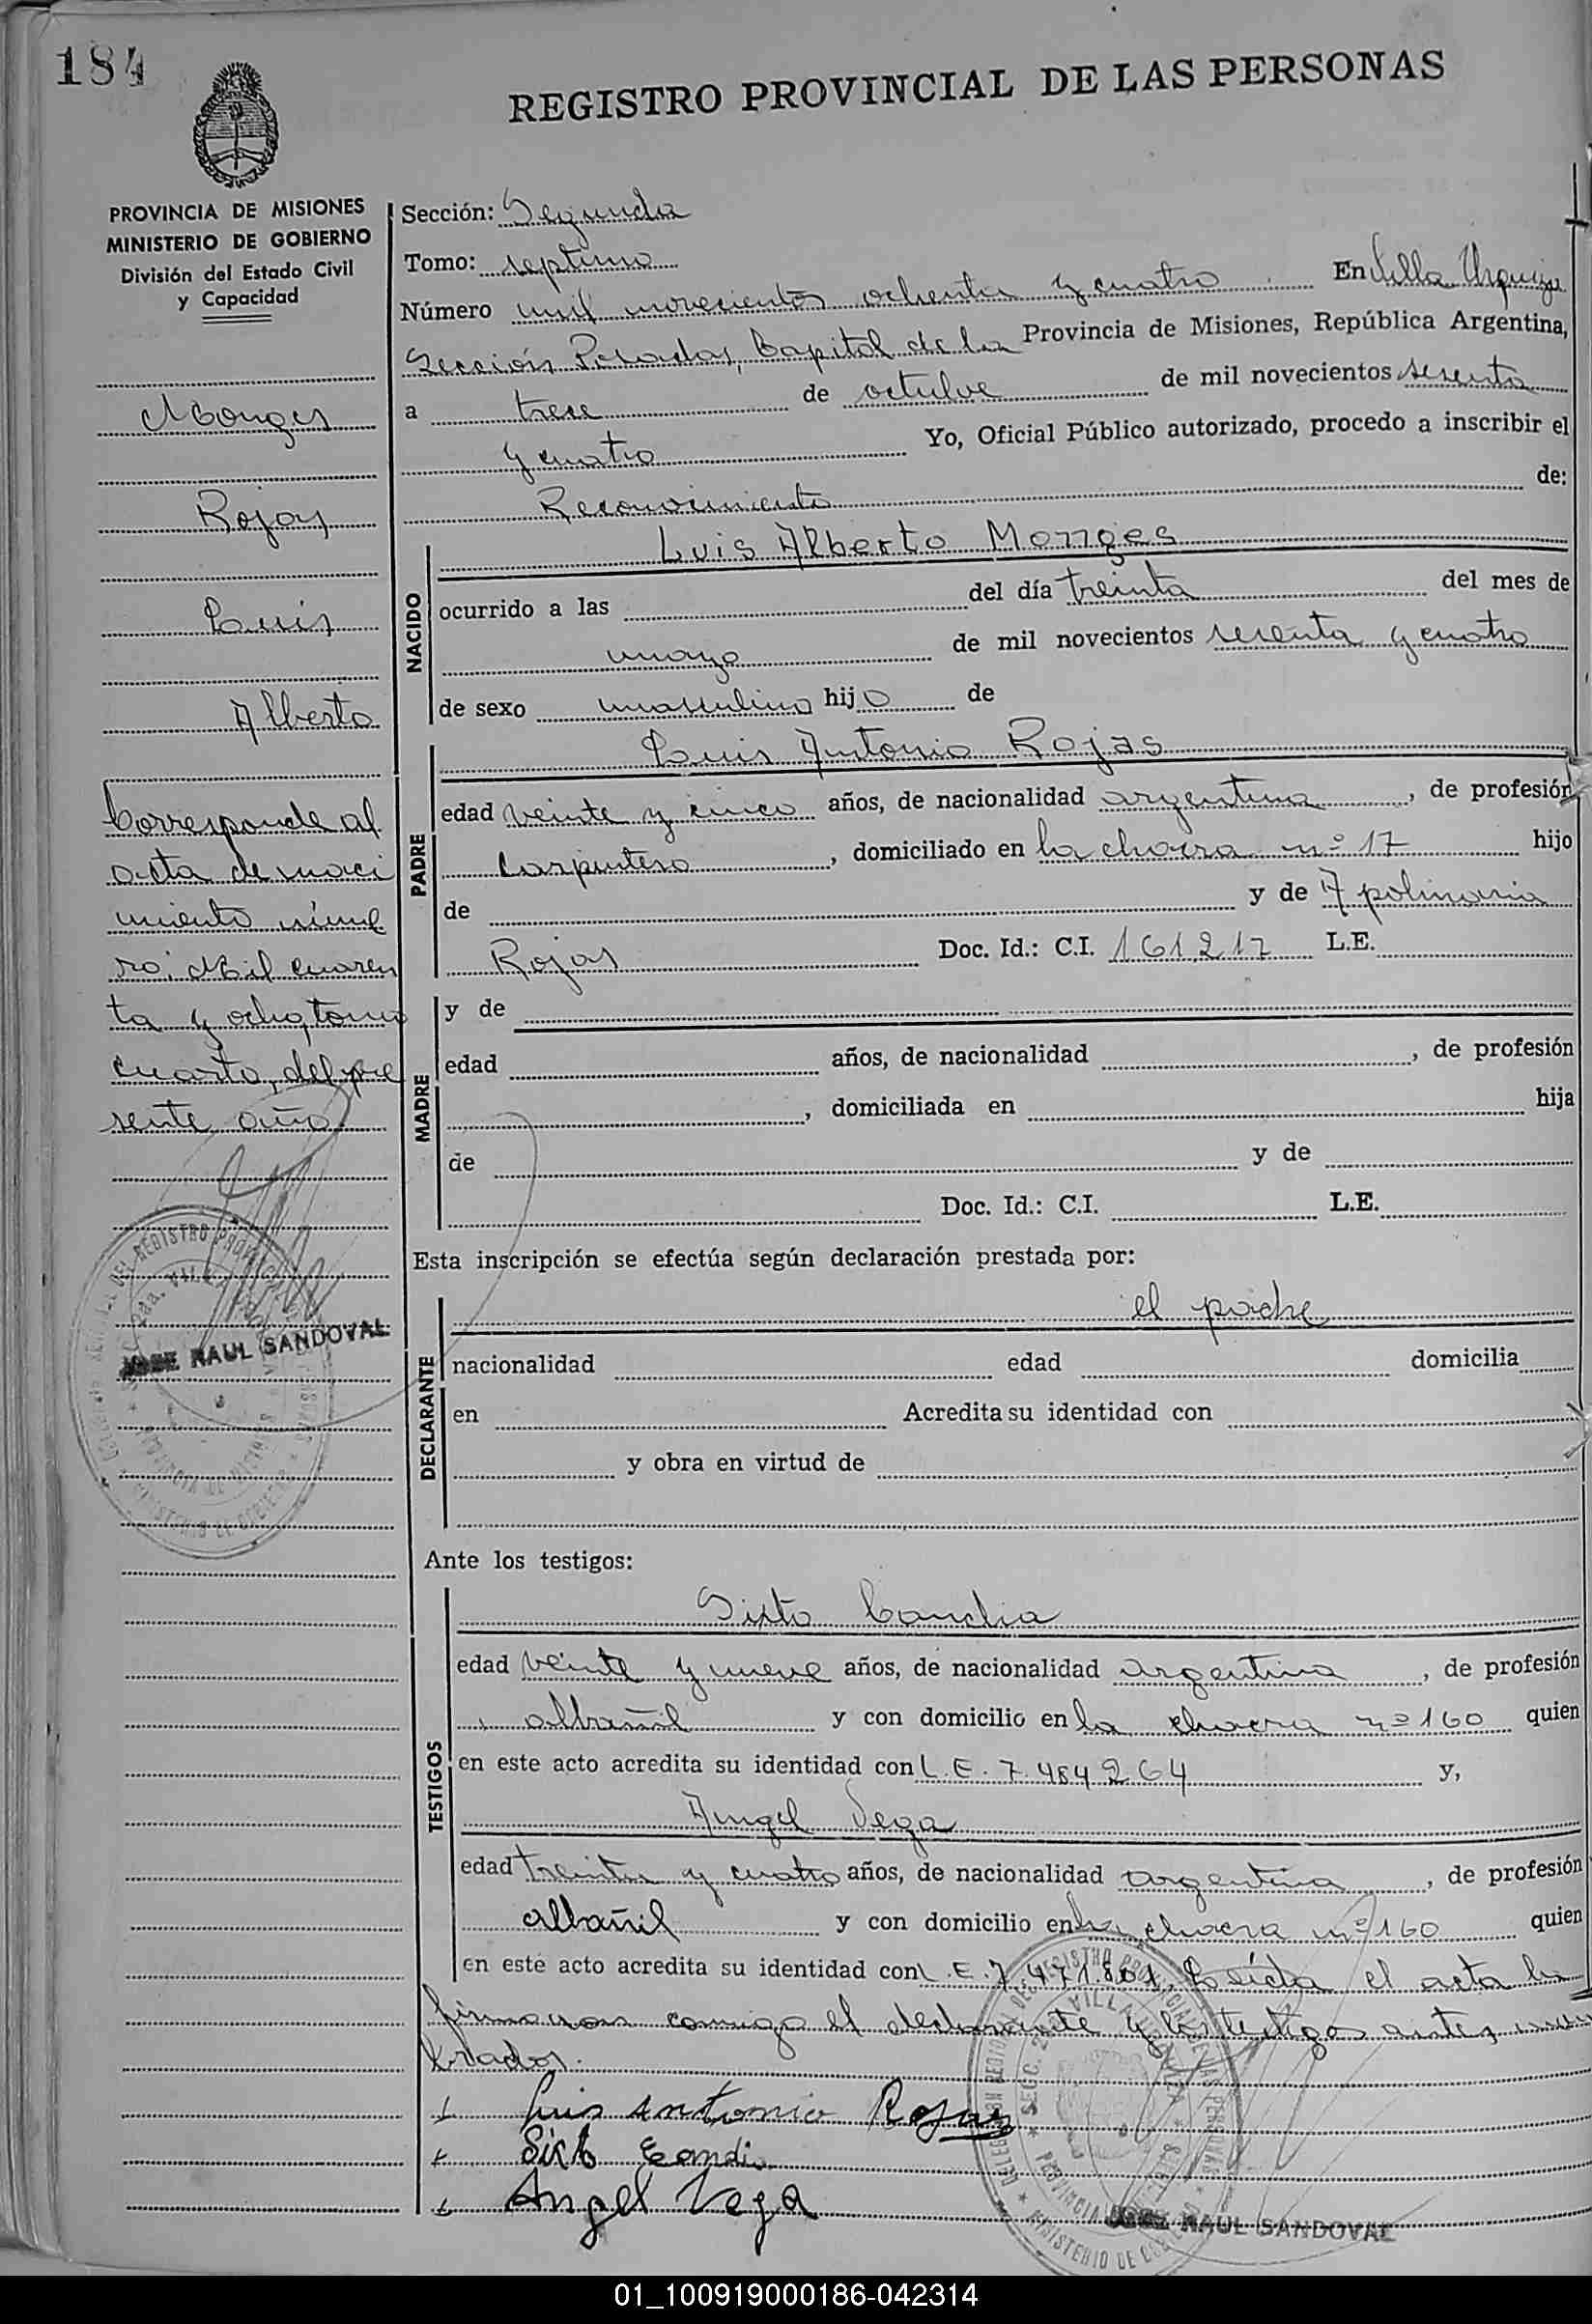 184
REGISTRO PROVINCIAL DE LAS PERSONAS
PROVINCIA DE MISIONES
MINISTERIO DE GOBIERNO
División del Estado Civil
y Capacidad
Monges
Rojas
Luis
Alberto
Corresponde al
acta de naci
miento núme
ro: Mil cuaren
ta y ocho, tomo
cuarto, del pre
sente año.
JOSE RAUL SANDOVAL
Sección: Segunda
Tomo: septimo
Número mil novecientos ochenta y cuatro. En Villa Urquiza
Sección Posadas, Capital de la Provincia de Misiones, República Argentina,
a trece de octubre de mil novecientos sesenta
y cuatro Yo, Oficial Público autorizado, procedo a inscribir el
Reconocimiento de:
NACIDO
Luis Alberto Monges
ocurrido a las del día treinta del mes de
mayo de mil novecientos sesenta y cuatro
de sexo masculino hijo de
PADRE
Luis Antonio Rojas
edad veinte y cinco años, de nacionalidad argentina, de profesión
carpintero, domiciliado en la chacra nº 17 hijo
de y de Apolinaria
Rojas Doc. Id.: C.I. 161.217 L.E.
MADRE
y de
edad años, de nacionalidad , de profesión
, domiciliada en hija
de y de
Doc. Id.: C.I. L.E.
Esta inscripción se efectúa según declaración prestada por:
DECLARANTE
el padre
nacionalidad edad domicilia
en Acredita su identidad con
y obra en virtud de
Ante los testigos:
TESTIGOS
Sixto Candia
edad veinte y nueve años, de nacionalidad argentina, de profesión
albañil y con domicilio en la chacra nº 160 quien
en este acto acredita su identidad con L.E. 7.484264 y,
Angel Vega
edad treinta y cuatro años, de nacionalidad argentina, de profesión
albañil y con domicilio en la chacra nº 160 quien
en este acto acredita su identidad con L.E. Leída el acta la
firmaron conmigo el declarante y los testigos antes nom
brados.
Luis Antonio Rojas
Sixto Candia
Angel Vega
JOSE RAUL SANDOVAL
01_100919000186-042314